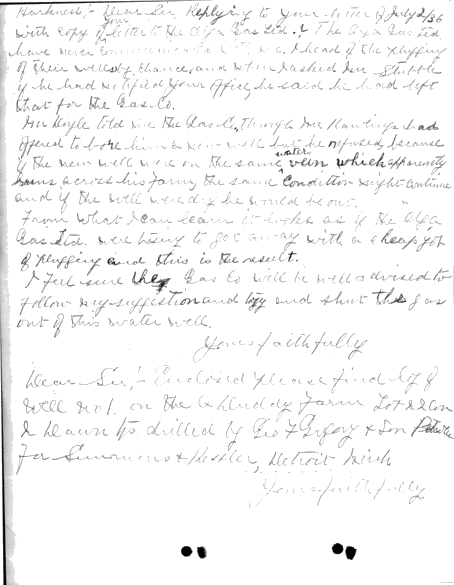 Harkness,- Dear Sir, Replying to your letter of July 2/36
with copy of your letter to the Alga Gas Ltd. The Alga Gas Ltd
have never communicated with me. I heard of the plugging
of their wells by chance, and when I asked Mr Stubble
if he had notified your office, he said he had left
that for the Gas Co.
Mr Doyle told me the Gas Co, through Mr Hastings had
offered to bore him a new well but he refused, because
if the new well were on the same water vein which apparently
runs across his farm, the same condition might continue
and if the well were dry he would be out.
From what I can learn it looks as if the Alga
Gas Ltd. were trying to get away with a cheap job
of plugging and this is the result.
I feel sure the Gas Co will be well advised to
follow my suggestion and try and shut the gas
out of this water well.
Yours faithfully
Dear Sir,- Enclosed please find log of
Well No 1. on the Farm Lot Con
drilled by Geo F Gregory & Son
For Simmons & Kessler, Detroit Mich
Yours faithfully